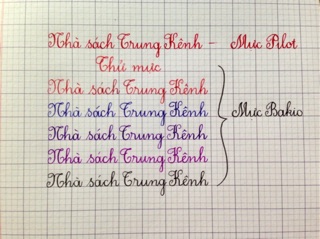 Nhà sách Trung Kênh - Mực Pilot
Thử mực
Nhà sách Trung Kênh
Nhà sách Trung Kênh
Mực Bakio
Nhà sách Trung Kênh
Nhà sách Trung Kênh
Nhà sách Trung Kênh